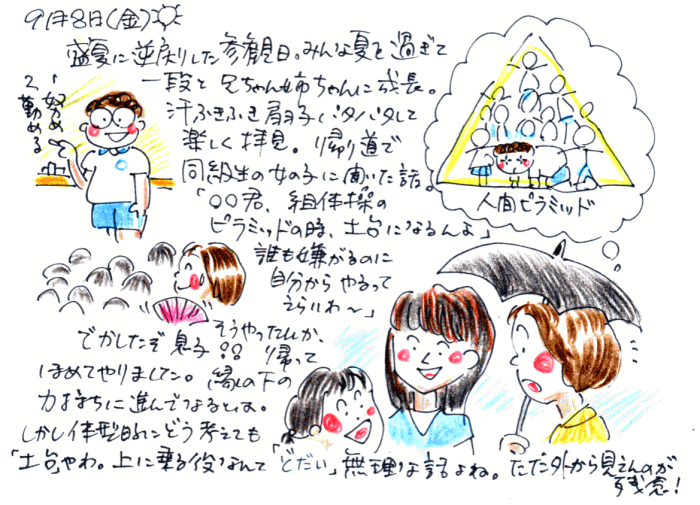 9月8日(金)
盛夏に逆戻りした参観日。みんな夏を過ぎて
一段と兄ちゃん姉ちゃんに成長。
汗ふきふき扇子パタパタして
楽しく拝見。帰り道で
同級生の女の子に聞いた話。
「○○君、組体操の
ピラミッドの時、土台になるんよ」
誰も嫌がるのに
自分からやるって
えらいわ〜」
「努める
勤める
人間ピラミッド
そうやったんか、
でかしたぞ息子!! 帰って
ほめてやりました。縁の下の
力持ちに進んでなるとは。
しかし体型的にどう考えても
「土台」やわ。上に乗る役なんて「どだい」無理な話よね。ただ外から見えんのが
残念!